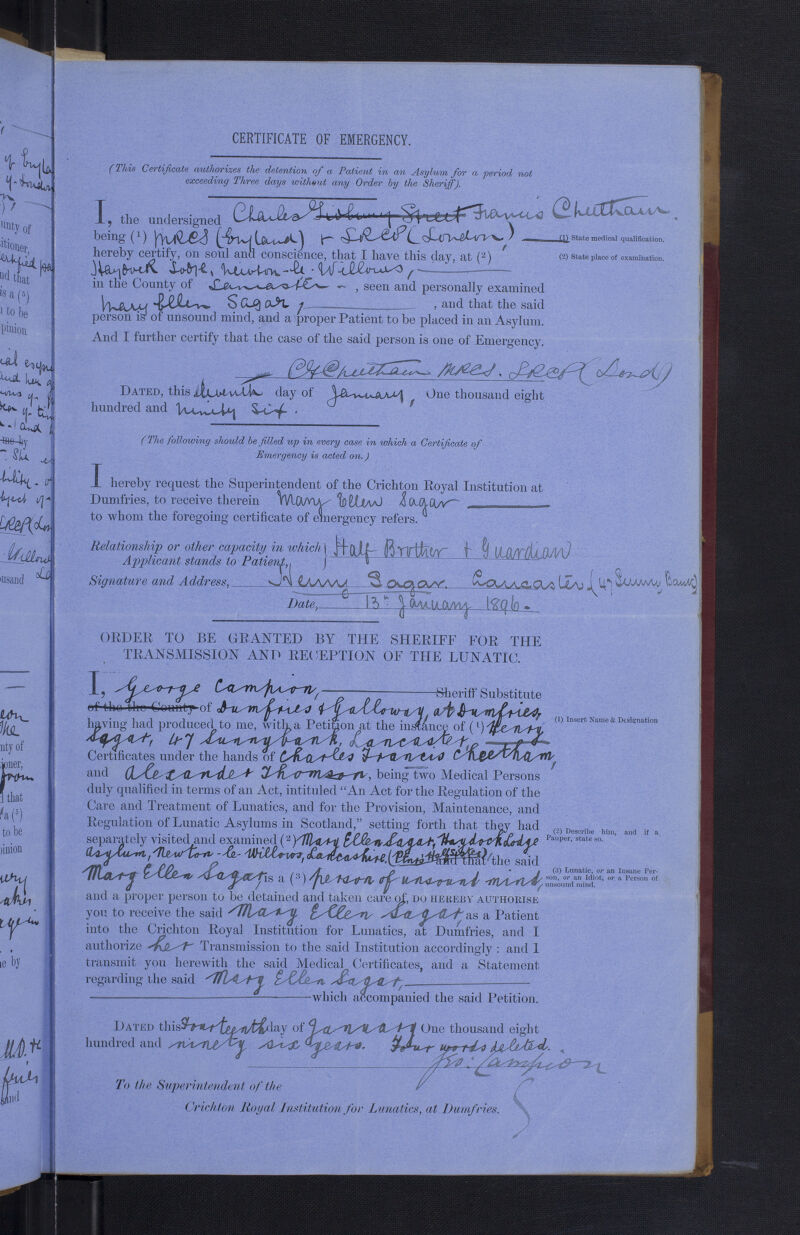 CERTIFICATE OF EMERGENCY.
(This Certificate authorizes the detention of a Patient in an Asylum for a period not
exceeding Three days without any Order by the Sheriff).
I, the undersigned Charles Francis Cheetham.
being (1) MRCS (England) + LRCP (London)
(1) State medical qualification.
hereby certify, on soul and conscience, that I have this day, at (2)
(2) State place of examination.
Haydock Lodge, Newton-le-Willows,
in the County of Lancaster, seen and personally examined
Mary Ellen Sagar, and that the said
person is of unsound mind, and a proper Patient to be placed in an Asylum.
And I further certify that the case of the said person is one of Emergency.
CF Cheetham MRCS. LRCP (Lond)
DATED, this eleventh day of January, One thousand eight
hundred and ninety six.
(The following should be filled up in every case in which a Certificate of
Emergency is acted on.)
I hereby request the Superintendent of the Crichton Royal Institution at
Dumfries, to receive therein Mary Ellen Sagar
to whom the foregoing certificate of emergency refers.
Relationship or other capacity in which
Applicant stands to Patient,
Half Brother & Guardian
Signature and Address, Henry Sagar. Lancaster (47 Sunny Bank)
Date, 13th January 1896.
ORDER TO BE GRANTED BY THE SHERIFF FOR THE
TRANSMISSION AND RECEPTION OF THE LUNATIC.
I, George Campion, Sheriff Substitute
of the the County of Dumfries & Galloway, at Dumfries,
having had produced to me, with a Petition at the instance of (1) Henry
(1) Insert Name & Designation
Sagar, 47 Sunnybank, Lancaster,
Certificates under the hands of Charles Francis Cheetham,
and Alexander Thomson, being two Medical Persons
duly qualified in terms of an Act, intituled "An Act for the Regulation of the
Care and Treatment of Lunatics, and for the Provision, Maintenance, and
Regulation of Lunatic Asylums in Scotland," setting forth that they had
separately visited and examined (2) Mary Ellen Sagar, Haydock Lodge
(2) Describe him, and if a
Pauper, state so.
Asylum, Newton-le-Willows, Lancashire, and that the said
Mary Ellen Sagar is a (3) person of unsound mind,
(3) Lunatic, or an Insane Per-
son, or an Idiot, or a Person of
unsound mind.
and a proper person to be detained and taken care of, DO HEREBY AUTHORISE
you to receive the said Mary Ellen Sagar, as a Patient
into the Crichton Royal Institution for Lunatics, at Dumfries, and I
authorize her Transmission to the said Institution accordingly: and I
transmit you herewith the said Medical Certificates, and a Statement
regarding the said Mary Ellen Sagar,
which accompanied the said Petition.
DATED this Fourteenth day of January One thousand eight
hundred and ninety six years. Four words deleted.
Geo: Campion
To the Superintendent of the
Crichton Royal Institution for Lunatics, at Dumfries.